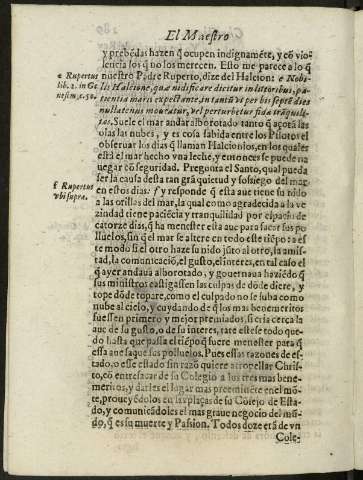 El Maestro
y prebēdas hazen q̃ ocupen indignamẽte, y cõ vio-
lencia los q̃ no los merecen. Esto me parece a lo q̃
e Rupertus
lib. 2. in Ge
nesim, c. 30.
nuestro Padre Ruperto, dize del Halcion: e Nobi-
lis Halcione, quæ nidificare dicitur in litoribus, pa-
tientia maris expectante, in tantũ vt per bis septẽ dies
nullatenus moueatur, vel perturbetur fida trãquili-
tas. Suele el mar andar alborotado tanto q̃ açota las
olas las nubes, y es cosa sabida entre los Pilotos el
obseruar los dias q̃ llaman Halcionios, en los quales
està el mar hecho vna leche, y entonces se puede na
uegar cõ seguridad. Pregunta el Santo, qual pueda
ser la causa desta tan grã quietud y sossiego del mar
f Rupertus
vbi supra.
en estos dias: f y responde q̃ esta aue tiene su nido
a las orillas del mar, la qual como agradecida a la ve
zindad tiene paciẽcia y tranquilidad por espacio de
catorze dias, q̃ ha menester esta aue para sacar sus po
lluelos, sin q̃ el mar se altere en todo este tiẽpo: a es
te modo si el otro haze su nido jũto al otro, la amis-
tad, la comunicaciõ, el gusto, el interes, en tal caso el
q̃ ayer andaua alborotado, y gouernaua haziẽdo q̃
sus ministros castigassen las culpas de dõ de diere, y
tope dõde topare, como el culpado no se suba como
nube al cielo, y cuydando de q̃ los mas benemeritos
fuessen primero y mejor premiados, si cria cerca la
aue de su gusto, o de su interes, rate estese todo que-
do hasta que passa el tiẽpo q̃ fuere menester para q̃
essa aue saque sus polluelos. Pues essas razones de es-
tado, o esse estado sin razõ quiere atropellar Chris-
to, cõ entresacar de su Colegio a los tres mas bene-
meritos, y darles el lugar mas preeminẽte en el mõ-
te, proueyẽdolos en las plaças de su Cõsejo de Esta-
do, y comunicãdoles el mas graue negocio del mũ-
do, q̃ es su muerte y Passion. Todos doze erã de vn
Cole-